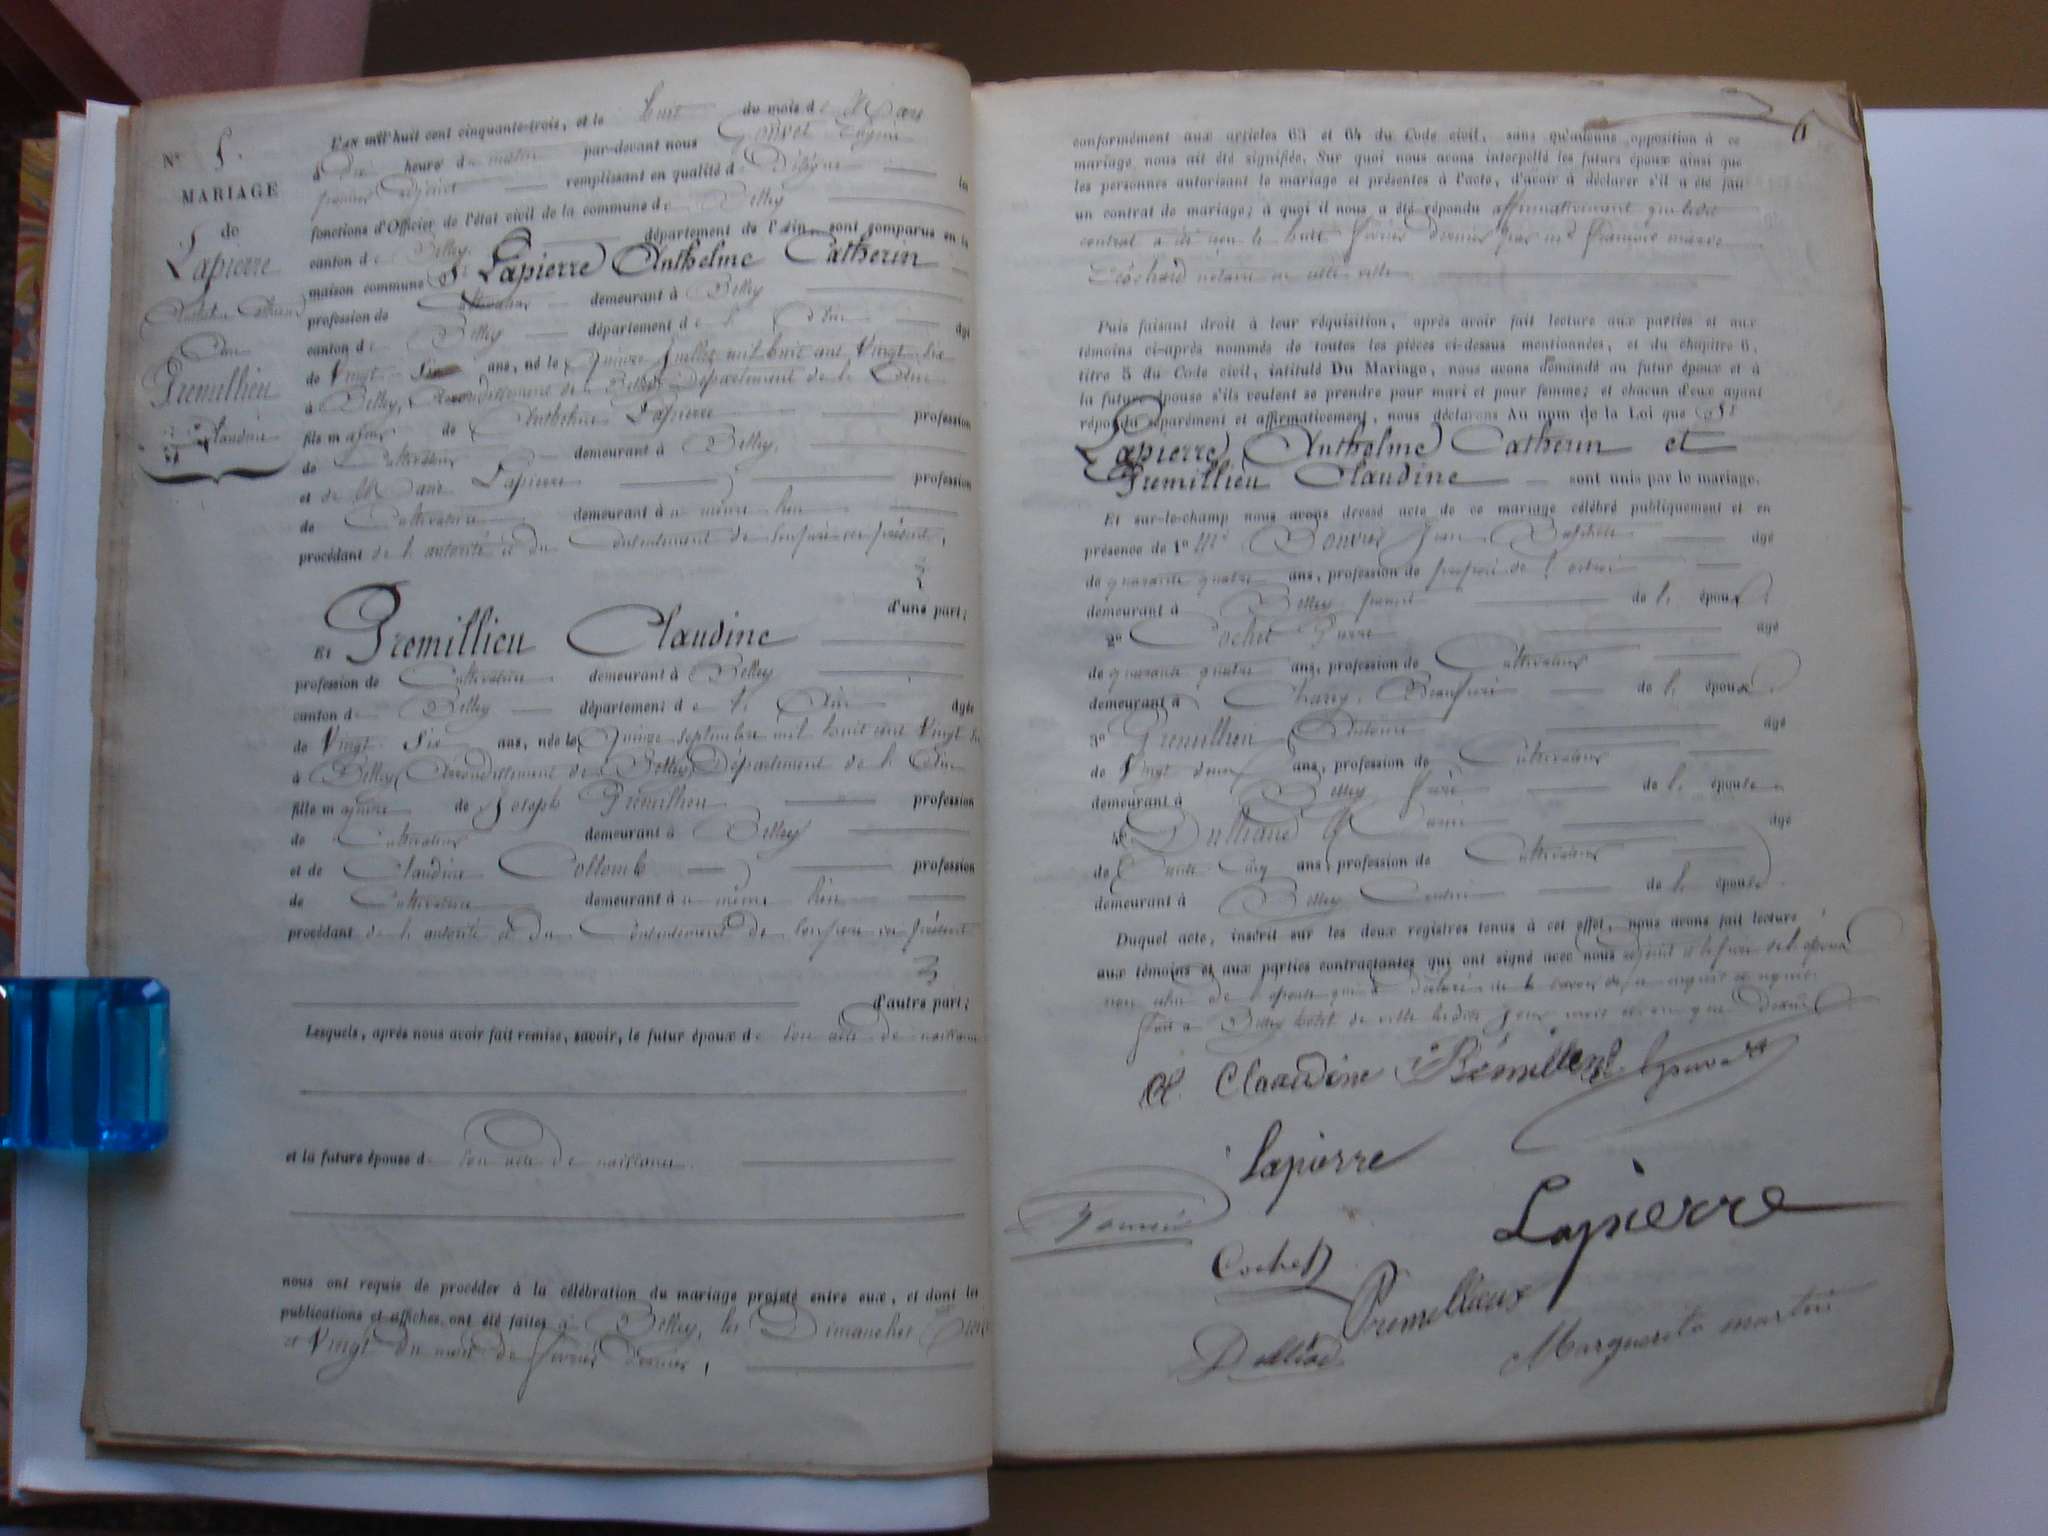 N° 5.
MARIAGE
de
Lapierre
Anthelme Catherin
Et
Premillieu
Claudine
L'an mil huit cent cinquante-trois, et le huit du mois de Mars
à dix heure du matin par-devant nous
premier adjoint remplissant en qualité de Délégué les
fonctions d'Officier de l'état civil de la commune de Belley
canton de Belley département de l'Ain, sont comparus en la
maison commune Sr Lapierre Anthelme Catherin
profession de Cultivateur demeurant à Belley
canton de Belley département de l'Ain âgé
de Vingt-Six ans, né le Quinze Juillet mil huit cent Vingt-Six
à Belley, Arrondissement de Belley Département de l'Ain
fils majeur de Anthelme Lapierre profession
de Cultivateur demeurant à Belley,
et de Lapierre profession
de Cultivatrice demeurant au même lieu
procédant de l'autorité et du Consentement de ses père et mère présents,
d'une part;
Et Premillieu Claudine
profession de Cultivatrice demeurant à Belley
canton de Belley département de l'Ain âgée
de Vingt-Six ans, née le Quinze Septembre mil huit cent Vingt Six
à Belley Arrondissement de Belley, Département de l'Ain
fille majeure de Joseph Premillieu profession
de Cultivateur demeurant à Belley
et de Claudine Collomb profession
de Cultivatrice demeurant au même lieu
procédant de l'autorité et du Consentement de ses père et mère présents
d'autre part;
Lesquels, après nous avoir fait remise, savoir, le futur époux de son acte de naissance
et la future épouse de son acte de naissance
nous ont requis de procéder à la célébration du mariage projeté entre eux, et dont les
publications et affiches ont été faites à Belley, les Dimanches
et Vingt du mois de février dernier,
conformément aux articles 63 et 64 du Code civil, sans qu'aucune opposition à ce
mariage nous ait été signifiée. Sur quoi nous avons interpellé les futurs époux ainsi que
les personnes autorisant le mariage et présentes à l'acte, d'avoir à déclarer s'il a été fait
un contrat de mariage; à quoi il nous a été répondu affirmativement que ledit
contrat a été reçu le huit février dernier par me françois marie
notaire en cette ville
Puis faisant droit à leur réquisition, après avoir fait lecture aux parties et aux
témoins ci-après nommés de toutes les pièces ci-dessus mentionnées, et du chapitre 6,
titre 5 du Code civil, intitulé Du Mariage, nous avons demandé au futur époux et à
la future épouse s'ils veulent se prendre pour mari et pour femme; et chacun d'eux ayant
répondu séparément et affirmativement, nous déclarons Au nom de la Loi que Sr
Lapierre Anthelme Catherin et
Premillieu Claudine sont unis par le mariage.
Et sur-le-champ nous avons dressé acte de ce mariage célébré publiquement et en
présence de 1° Mr Jean Baptiste âgé
de quarante quatre ans, profession de préposé de l'octroi
demeurant à Belley de l'époux
2° Cochet Pierre âgé
de quarante quatre ans, profession de Cultivateur
demeurant à Beaufrère de l'époux
3° Premillieu Antoine âgé
de Vingt deux ans, profession de Cultivateur
demeurant à Belley frère de l'épouse
4° âgé
de Trente Cinq ans, profession de Cultivateur
demeurant à Belley Cousin de l'épouse
Duquel acte, inscrit sur les deux registres tenus à cet effet, nous avons fait lecture
aux témoins et aux parties contractantes qui ont signé avec nous
fait à Belley hotel de ville
Claudine
Lapierre
Lapierre
Cochet
Premillieux
Marguerite martin